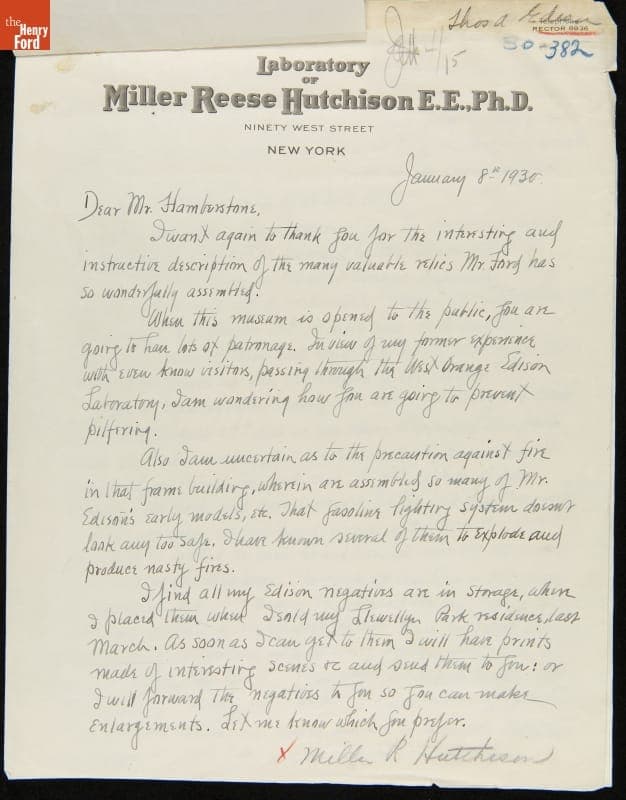 the
Henry
Ford
Thos A Edison
Telephone
RECTOR 9936
30-382
11/15
Laboratory
OF
Miller Reese Hutchison E.E., Ph.D.
NINETY WEST STREET
NEW YORK
January 8th 1930.
Dear Mr. Hamberstone,
I want again to thank you for the interesting and
instructive description of the many valuable relics Mr. Ford has
so wonderfully assembled.
When this museum is opened to the public, you are
going to have lots of patronage. In view of my former experience
with even know visitors, passing through the West Orange Edison
Laboratory, I am wondering how you are going to prevent
pilfering.
Also I am uncertain as to the precaution against fire
in that frame building, wherein are assembled so many of Mr.
Edison's early models, etc. That gasoline lighting system doesn't
look any too safe. I have known several of them to explode and
produce nasty fires.
I find all my Edison negatives are in storage, where
I placed them when I sold my Llewellyn Park residence, last
March. As soon as I can get to them I will have prints
made of interesting scenes &c and send them to you: or
I will forward the negatives to you so you can make
enlargements. Let me know which you prefer.
x Miller R Hutchison